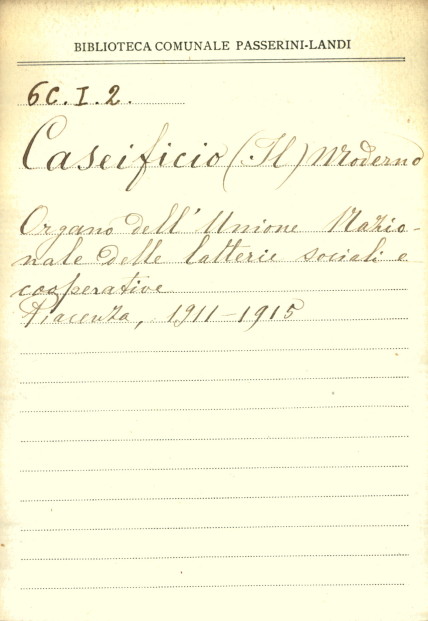 BIBLIOTECA COMUNALE PASSERINI-LANDI
6C. I. 2.
Caseificio (Il) Moderno
Organo dell' Unione Nazio-
nale delle latterie sociali e
cooperative
Piacenza, 1911-1915